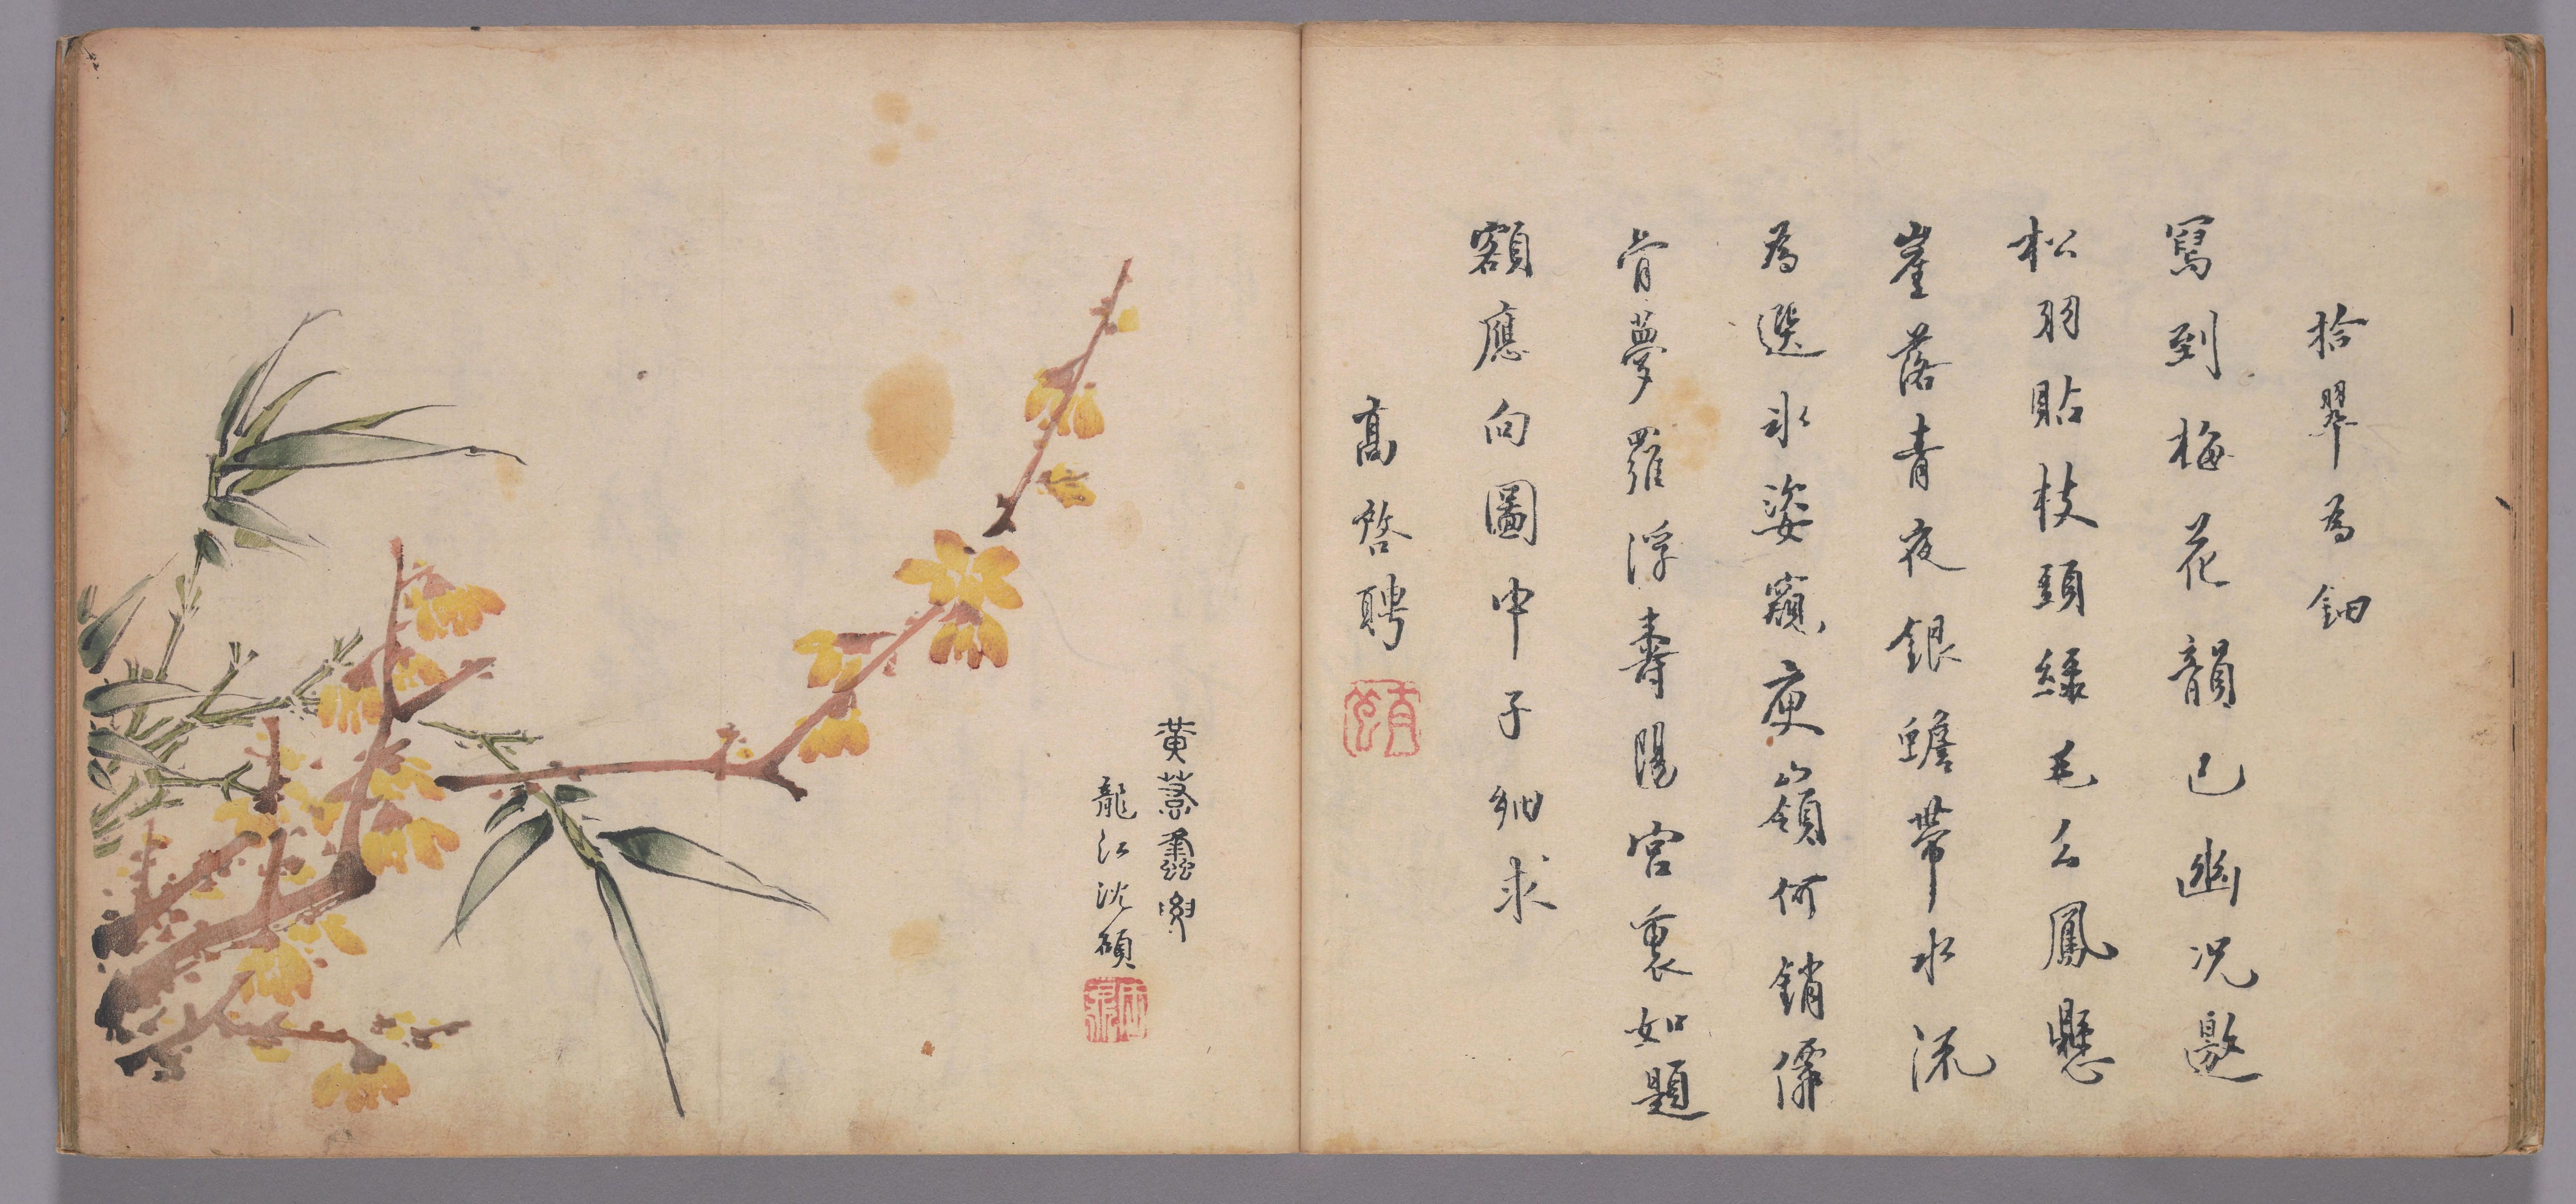 拾翠為鈿
寫到梅花韻已幽況邀
松羽貼枝頭綠毛幺鳳懸
崖落青夜銀蟾帶水流
為選冰姿窺庾嶺何銷僊
骨夢羅浮壽陽宮裏如題
額應向圖中子細求
高啓聘
黃
龍江沈碩